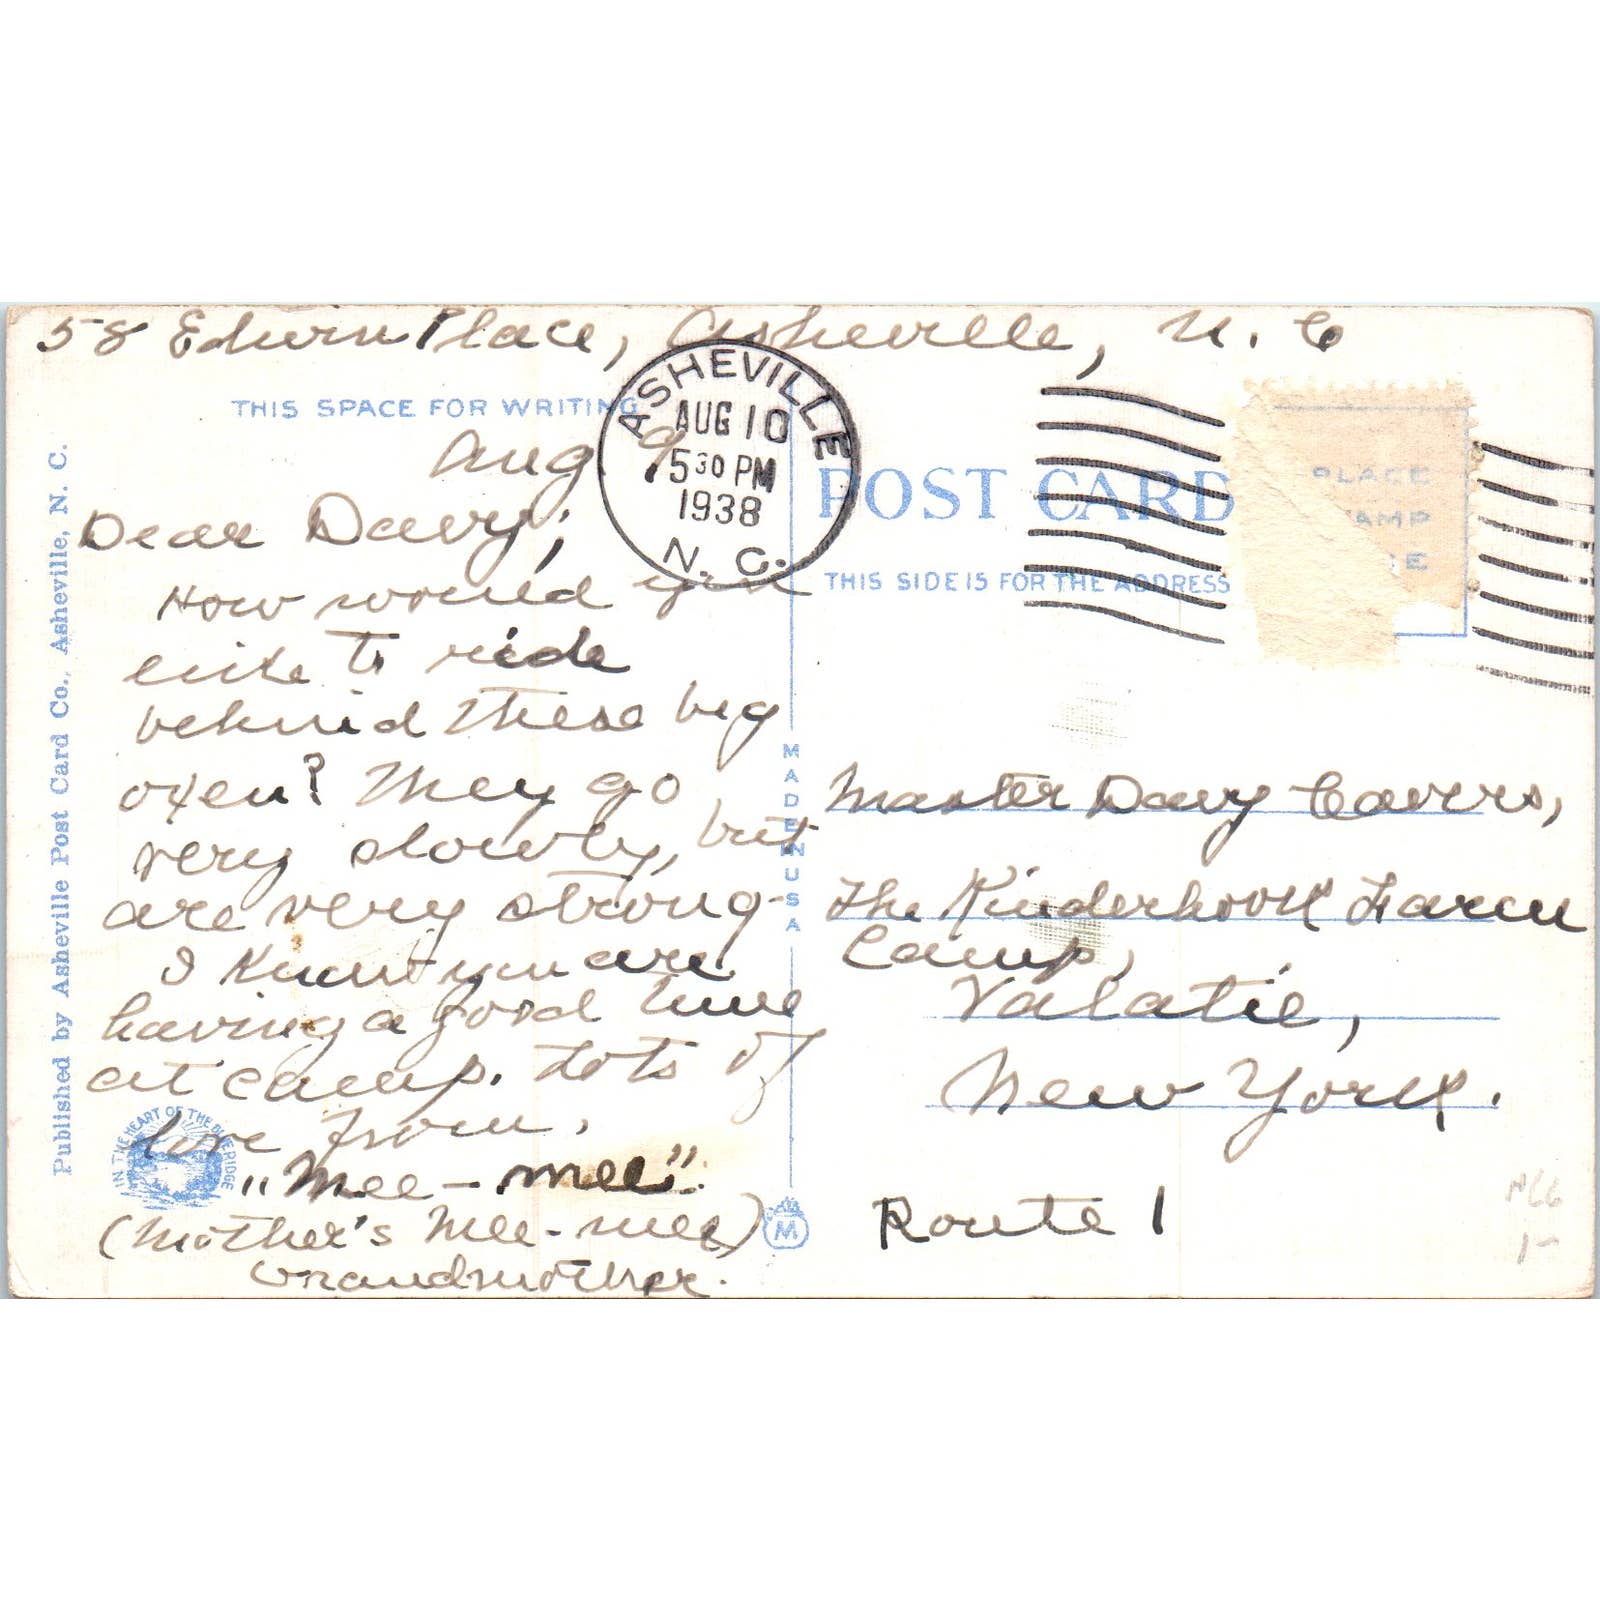 58 Edwin Place, Asheville, N. C
THIS SPACE FOR WRITING
Aug. 9
ASHEVILLE
AUG 10
5 30 PM
1938
N. C.
Dear Davy;
How would you
like to ride
behind these big
oxen? They go
very slowly, but
are very strong-
I know you are
having a good time
at camp. Lots of
love from,
"Mee-mee".
(Mother's Mee-mee)
Grandmother.
Published by Asheville Post Card Co., Asheville, N. C.
IN THE HEART OF THE BLUE RIDGE
MADE IN USA
M
POST CARD
THIS SIDE IS FOR THE ADDRESS
PLACE
AMP
E
Master Davy Cavers,
The Kinderhook Farm
Camp,
Valatie,
New York.
Route 1
1-